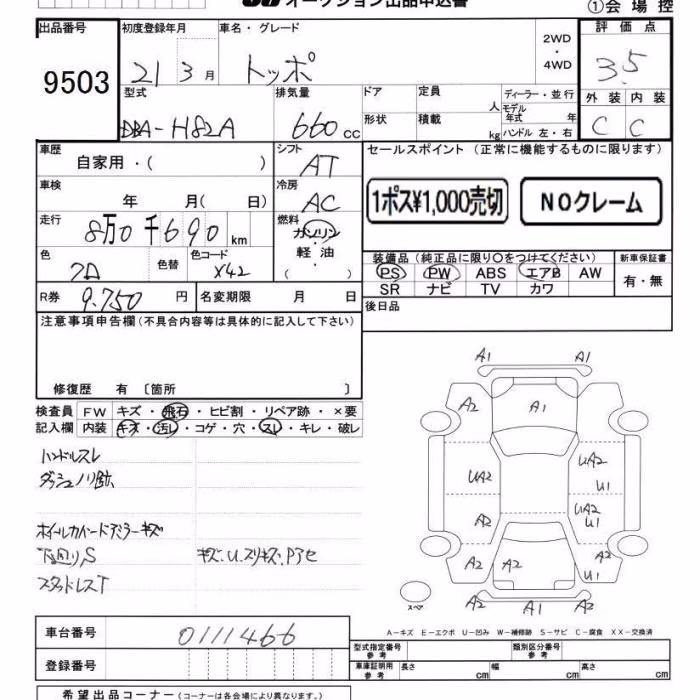 オークション出品申込書
①会場控
出品番号 初度登録年月 車名・グレード 2WD・4WD 評価点
9503 21 3月 トッポ 3.5
型式 排気量 ドア 定員 人 ディーラー・並行 外装 内装
DBA-H82A 660cc 形状 積載 kg モデル年式 年 C C
ハンドル 左・右
車歴 自家用・( ) シフト AT セールスポイント(正常に機能するものに限ります)
車検 年 月( 日) 冷房 AC 1ポス¥1,000売切 NOクレーム
走行 8万0千690km 燃料 ガソリン
軽油
( )
色 クロ 色替 色コード X42
装備品(純正品に限り○をつけてください) 新車保証書
PS PW ABS エアB AW 有・無
SR ナビ TV カワ
R券 9.750円 名変期限 月 日 後日品
注意事項申告欄(不具合内容等は具体的に記入して下さい)
修復歴 有 〔箇所 〕
検査員 FW キズ・飛石・ヒビ割・リペア跡・×要
記入欄 内装 キズ・汚れ・コゲ・穴・スレ・キレ・破レ
ハンドルスレ
ダッシュノリ跡
ホイールカバードアミラーキズ
下回りS キズ.U.スリキズ.Pアセ
スタッドレスT
A1 A1
A2 A1
UA2 UA2
U1
A2 UA2
U1
A2 A2 A2
U1
スペア A2 A1 A2
A-キズ E-エクボ U-凹み W-補修跡 S-サビ C-腐食 XX-交換済
車台番号 0111466
型式指定番号 参考 類別区分番号 参考
登録番号 車庫証明用 参考 長さ cm 幅 cm 高さ cm
希望出品コーナー(コーナーは各会場により異なります。)